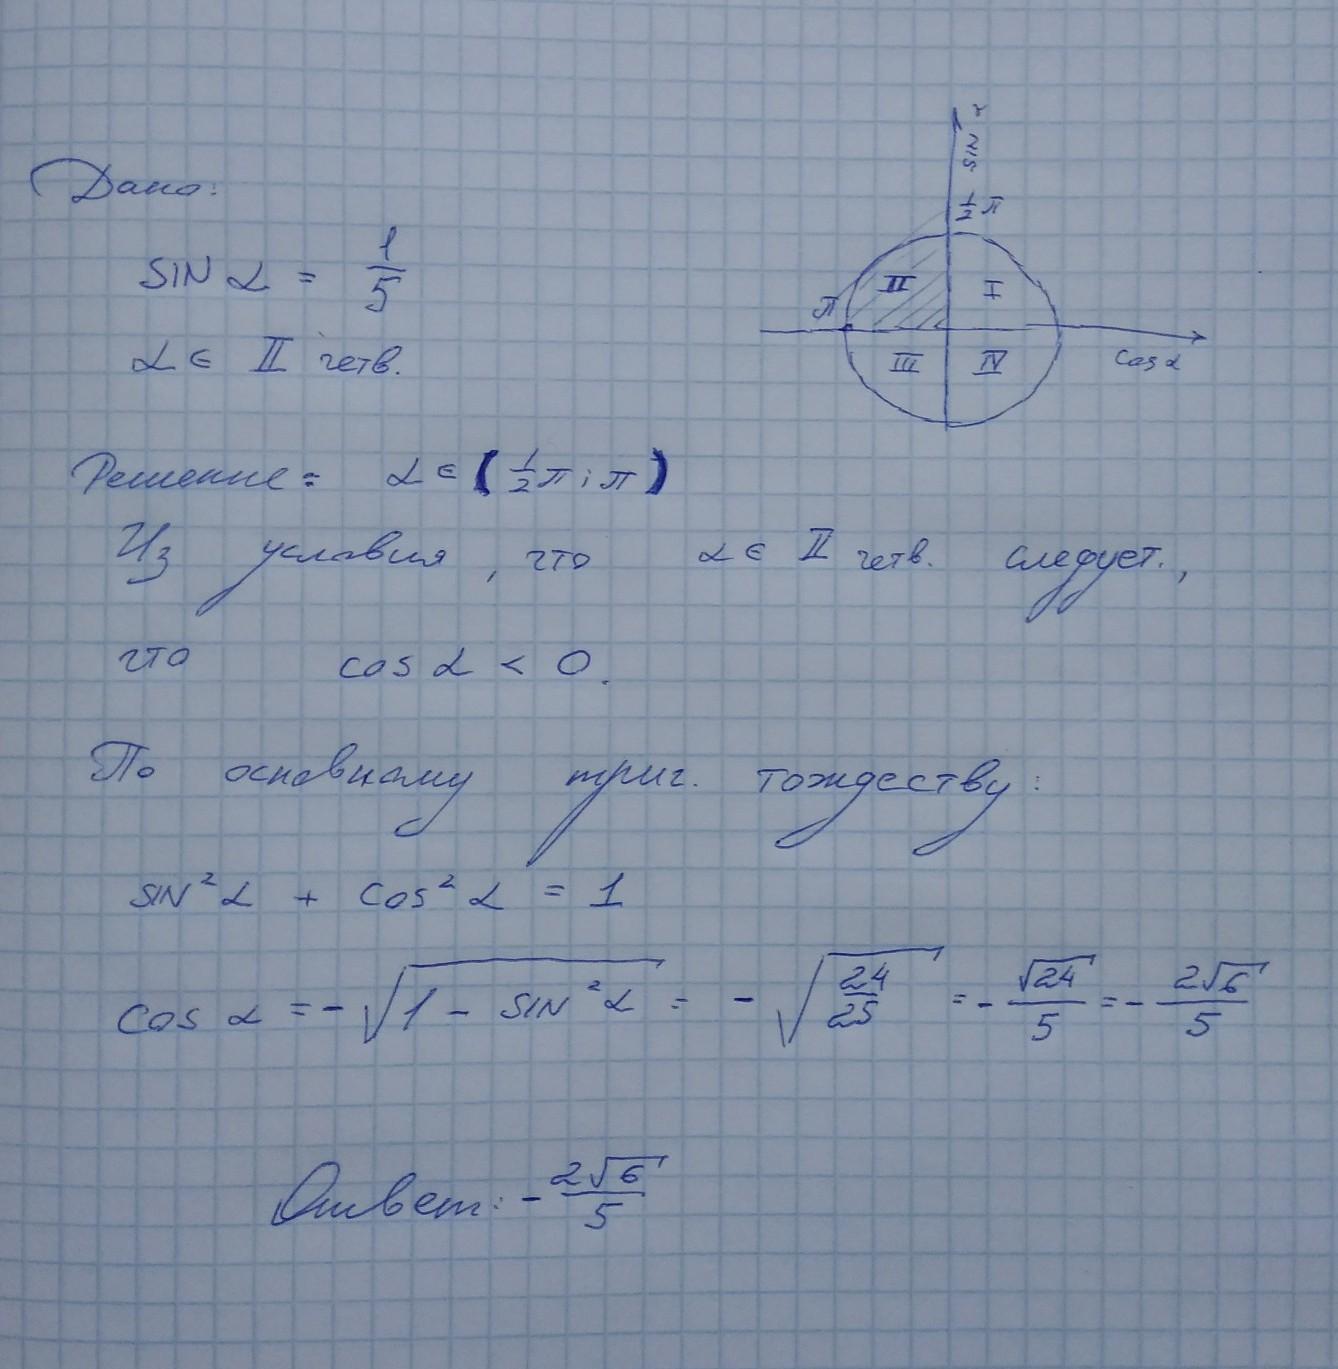 Дано:
sin α = 1/5
α ∈ II четв.
sin α
1/2 π
II
I
π
III
IV
cos α
Решение: α ∈ (1/2 π; π)
Из условия, что α ∈ II четв. следует.,
что cos α < 0.
По основному триг. тождеству:
sin² α + cos² α = 1
cos α = -√(1 - sin² α) = -√(24/25) = -√24/5 = -2√6/5
Ответ: -2√6/5